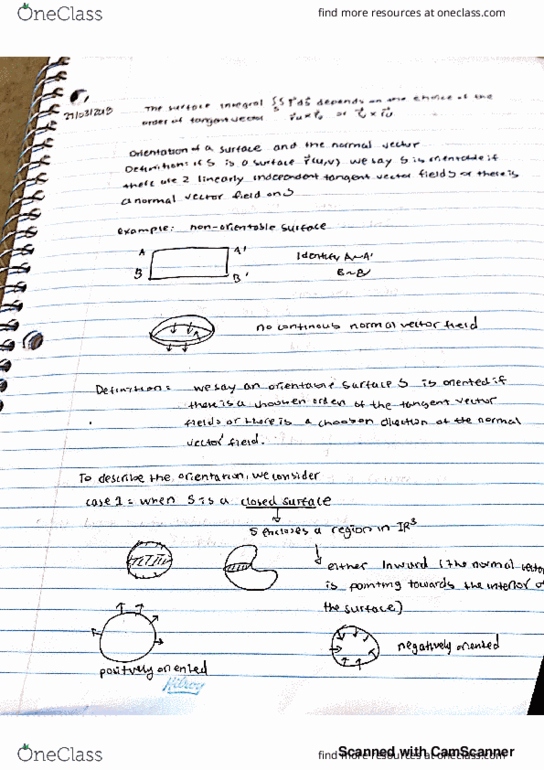 OneClass
find more resources at oneclass.com
27/03/2018
The surface integral ∫∫ F dS depends on the choice of the
order of tangent vector ru × rv or rv × ru
Orientation of a surface and the normal vector
Definition: if S is a surface r(u,v) we say S is orientable if
there are 2 linearly independent tangent vector fields or there is
a normal vector field on S
example: non-orientable surface
A A'
Identify A~A'
B B'
B~B'
no continous normal vector field
Definition: we say an orientable surface S is oriented if
there is a choosen order of the tangent vector
fields or there is a choosen direction of the normal
vector field.
To describe the orientation, we consider
case 1 = when S is a closed surface
S encloses a region in IR³
either inward (the normal vector
is pointing towards the interior of
the surface)
positively oriented
negatively oriented
Hilroy
OneClass
find more resources at oneclass.com
Scanned with CamScanner